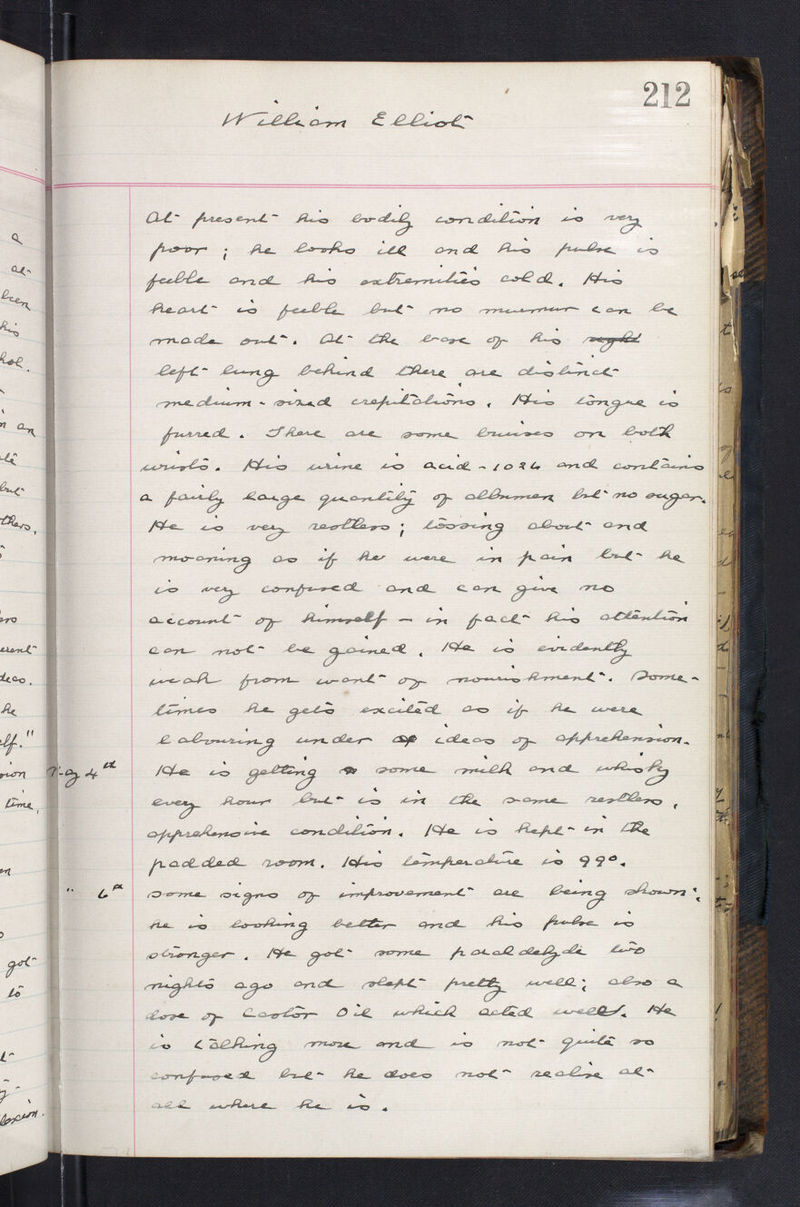 212
William Elliot
At present his bodily condition is very
poor; he looks ill and his pulse is
feeble and his extremities cold. His
heart is feeble but no murmur can be
made out. At the base of his right
left lung behind there are distinct
medium-sized crepitations. His tongue is
furred. There are some bruises on both
wrists. His urine is acid - 1024 and contains
a fairly large quantity of albumen but no sugar.
He is very restless; tossing about and
moaning as if he were in pain but he
is very confused and can give no
account of himself - in fact his attention
can not be gained. He is evidently
weak from want of nourishment. Some-
times he gets excited as if he were
labouring under of ideas of apprehension.
May 4th He is getting some milk and whisky
every hour but is in the same restless,
apprehensive condition. He is kept in the
padded room. His temperature is 99°.
" 6th Some signs of improvement are being shown;
he is looking better and his pulse is
stronger. He got some paraldehyde two
nights ago and slept pretty well; also a
dose of Castor Oil which acted well. He
is talking more and is not quite so
confused but he does not realise at
all where he is.